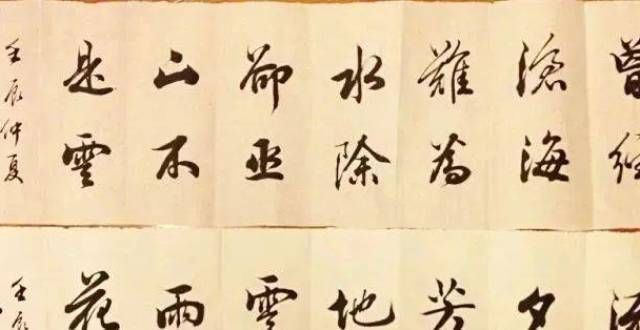 曾經
滄海
難為
水除
卻巫
山不
是雲
壬辰仲夏
夕
芳
地
雲
雨
花
壬辰